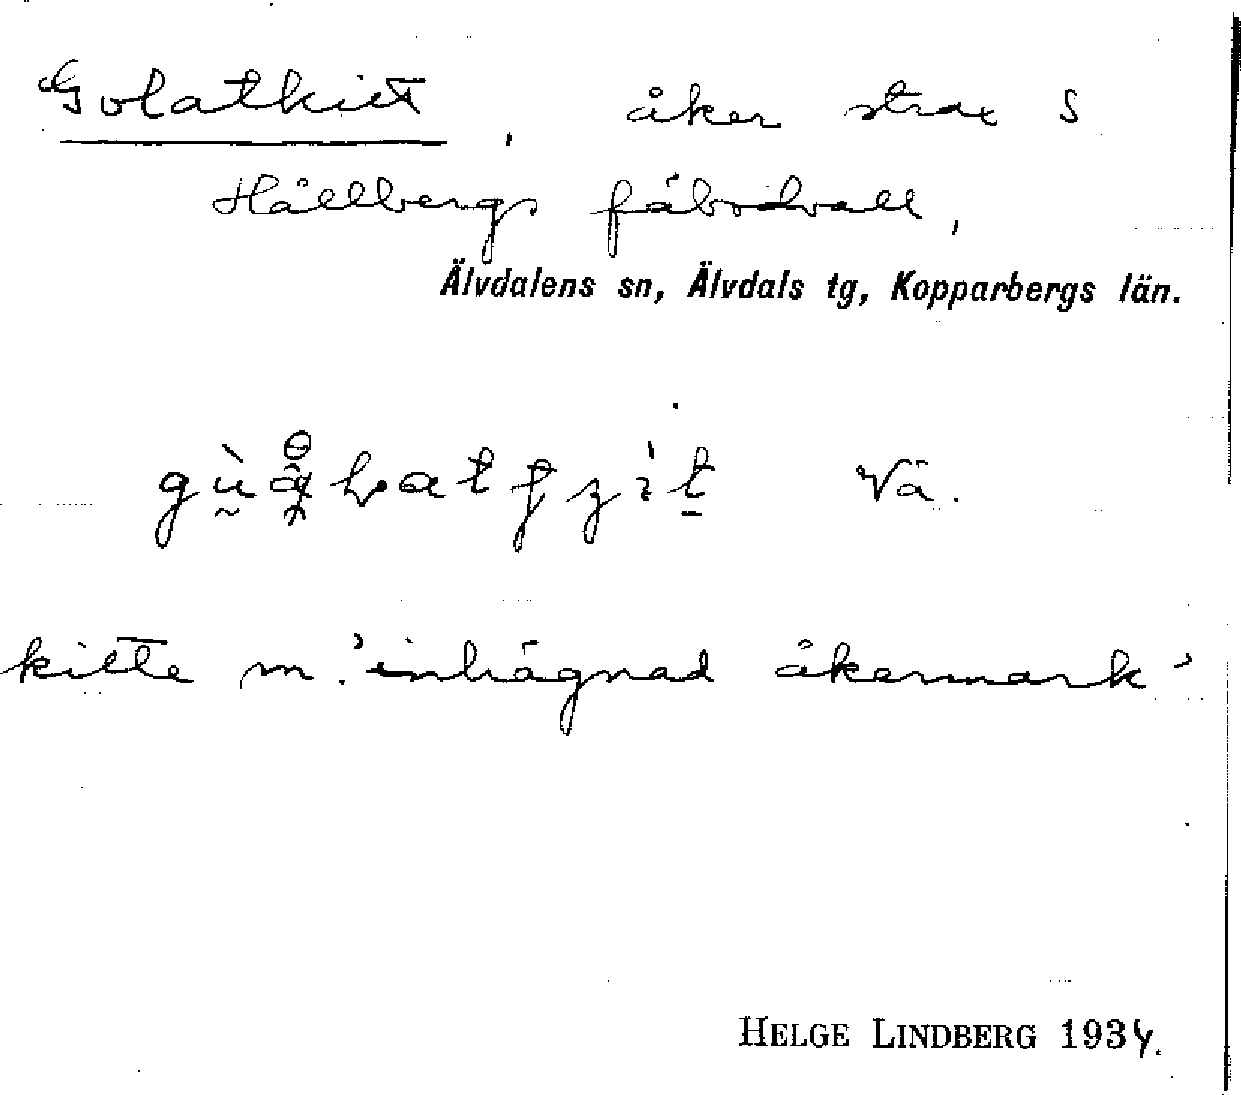 Golatkitt, åker strax S
Hållbergs fäbodvall,
Älvdalens sn, Älvdals tg, Kopparbergs län.
Vä.
kitte m. 'inhägnad åkermark'
HELGE LINDBERG 1934.